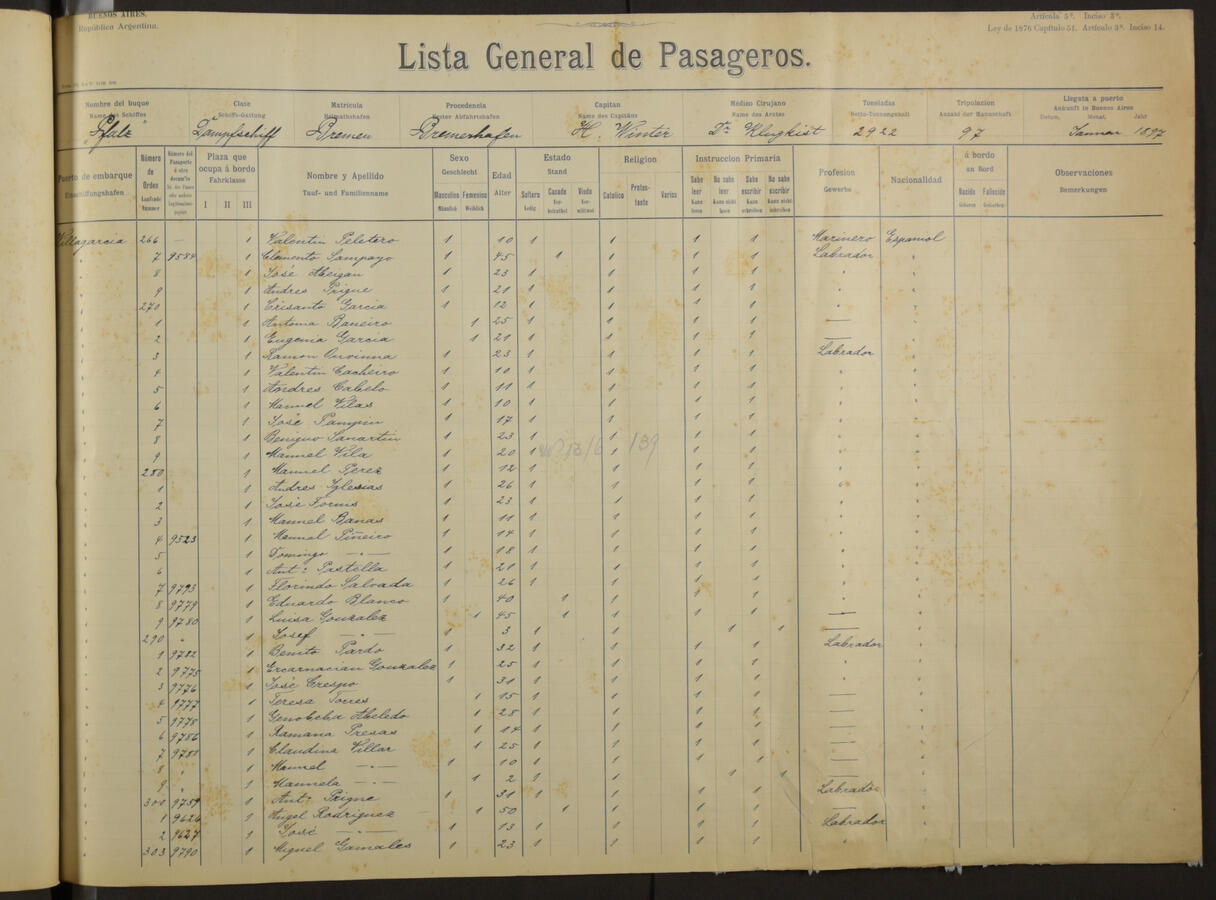 BUENOS AIRES.
República Argentina.
Artícula 5º. Inciso 3º.
Ley de 1876 Capítulo 51. Artículo 3º. Inciso 14.
Lista General de Pasageros.
Nombre del buque Clase Matrícula Procedencia Capitan Médico Cirujano Toneladas Tripolacion Llegata a puerto
Name des Schiffes Schiffs-Gattung Heimathshafen Erster Abfahrtshafen Name des Capitäns Name des Arztes Netto-Tonnengehalt Anzahl der Mannschaft Ankunft in Buenos Aires
Datum, Monat, Jahr
"Pfalz" Dampfschiff Bremen Bremerhafen H. Winter Dr Klugkist 2922 97 Januar 1897
Puerto de embarque
Einschiffungshafen
Número de Orden
Laufende Nummer
Número del Pasaporte ó otro
Plaza que ocupa á bordo
Fahrklasse
I II III
Nombre y Apellido
Tauf- und Familienname
Sexo
Geschlecht
Masculino Femenino
Männlich Weiblich
Edad
Alter
Estado
Stand
Soltero Casado Viudo
Ledig
Religion
Catolico Protestante Varios
Instruccion Primaria
Sabe leer No sabe leer Sabe escribir No sabe escribir
Kann lesen Kann nicht lesen Kann schreiben Kann nicht schreiben
Profesion
Gewerbe
Nacionalidad
á bordo
an Bord
Nacido Fallecido
Geboren Gestorben
Observaciones
Bemerkungen
Villagarcia 266 — 1 Valentin Peletero 1 10 1 1 1 1 Marinero Espaniol
" 7 9584 1 Clemento Sampayo 1 45 1 1 1 1 Labrador "
" 8 1 José Abeigan 1 23 1 1 1 1 " "
" 9 1 Andres Prigue 1 21 1 1 1 1 " "
" 270 1 Crisanto Garcia 1 12 1 1 1 1 " "
" 1 1 Antonia Baneiro 1 25 1 1 1 1 — "
" 2 1 Eugenia Garcia 1 21 1 1 1 1 — "
" 3 1 Ramon 1 23 1 1 1 1 Labrador "
" 4 1 Valentin Cacheiro 1 10 1 1 1 1 " "
" 5 1 Andres Cabelo 1 11 1 1 1 1 " "
" 6 1 Manuel Vilas 1 10 1 1 1 1 " "
" 7 1 José Pampin 1 17 1 1 1 1 " "
" 8 1 Benigno Sanartin 1 23 1 1 1 1 " "
" 9 1 Manuel Vila 1 20 1 1 1 1 " "
" 280 1 Manuel Perez 1 12 1 1 1 1 " "
" 1 1 Andres Iglesias 1 26 1 1 1 1 " "
" 2 1 José Forms 1 23 1 1 1 1 " "
" 3 1 Manuel Banas 1 11 1 1 1 1 " "
" 4 9523 1 Manuel Piñeiro 1 14 1 1 1 1 " "
" 5 1 Domingo —"— 1 18 1 1 1 1 " "
" 6 1 Ant: Pastella 1 21 1 1 1 1 " "
" 7 9793 1 Florindo Salvada 1 26 1 1 1 1 " "
" 8 9779 1 Eduardo Blanco 1 40 1 1 1 1 " "
" 9 9780 1 Luisa Gonzalez 1 45 1 1 1 1 — "
" 290 " 1 Josef —"— 1 3 1 1 1 1 — "
" 1 9782 1 Benito Pardo 1 32 1 1 1 1 Labrador "
" 2 9775 1 Encarnacian Gonzalez 1 25 1 1 1 1 " "
" 3 9776 1 José Crespo 1 31 1 1 1 1 " "
" 4 9777 1 Teresa Torres 1 15 1 1 1 1 — "
" 5 9778 1 Genobeba Abeledo 1 28 1 1 1 1 — "
" 6 9786 1 Ramana Presas 1 14 1 1 1 1 — "
" 7 9781 1 Claudina Villar 1 25 1 1 1 1 — "
" 8 " 1 Manuel —"— 1 10 1 1 1 1 — "
" 9 " 1 Manuela —"— 1 2 1 1 1 1 — "
" 300 9759 1 Ant: Prigue 1 31 1 1 1 1 Labrador "
" 1 9626 1 Angel Rodriguez 1 50 1 1 1 1 — "
" 2 9627 1 José —"— 1 13 1 1 1 1 Labrador "
" 303 9790 1 Miguel Gamales 1 23 1 1 1 1 " "